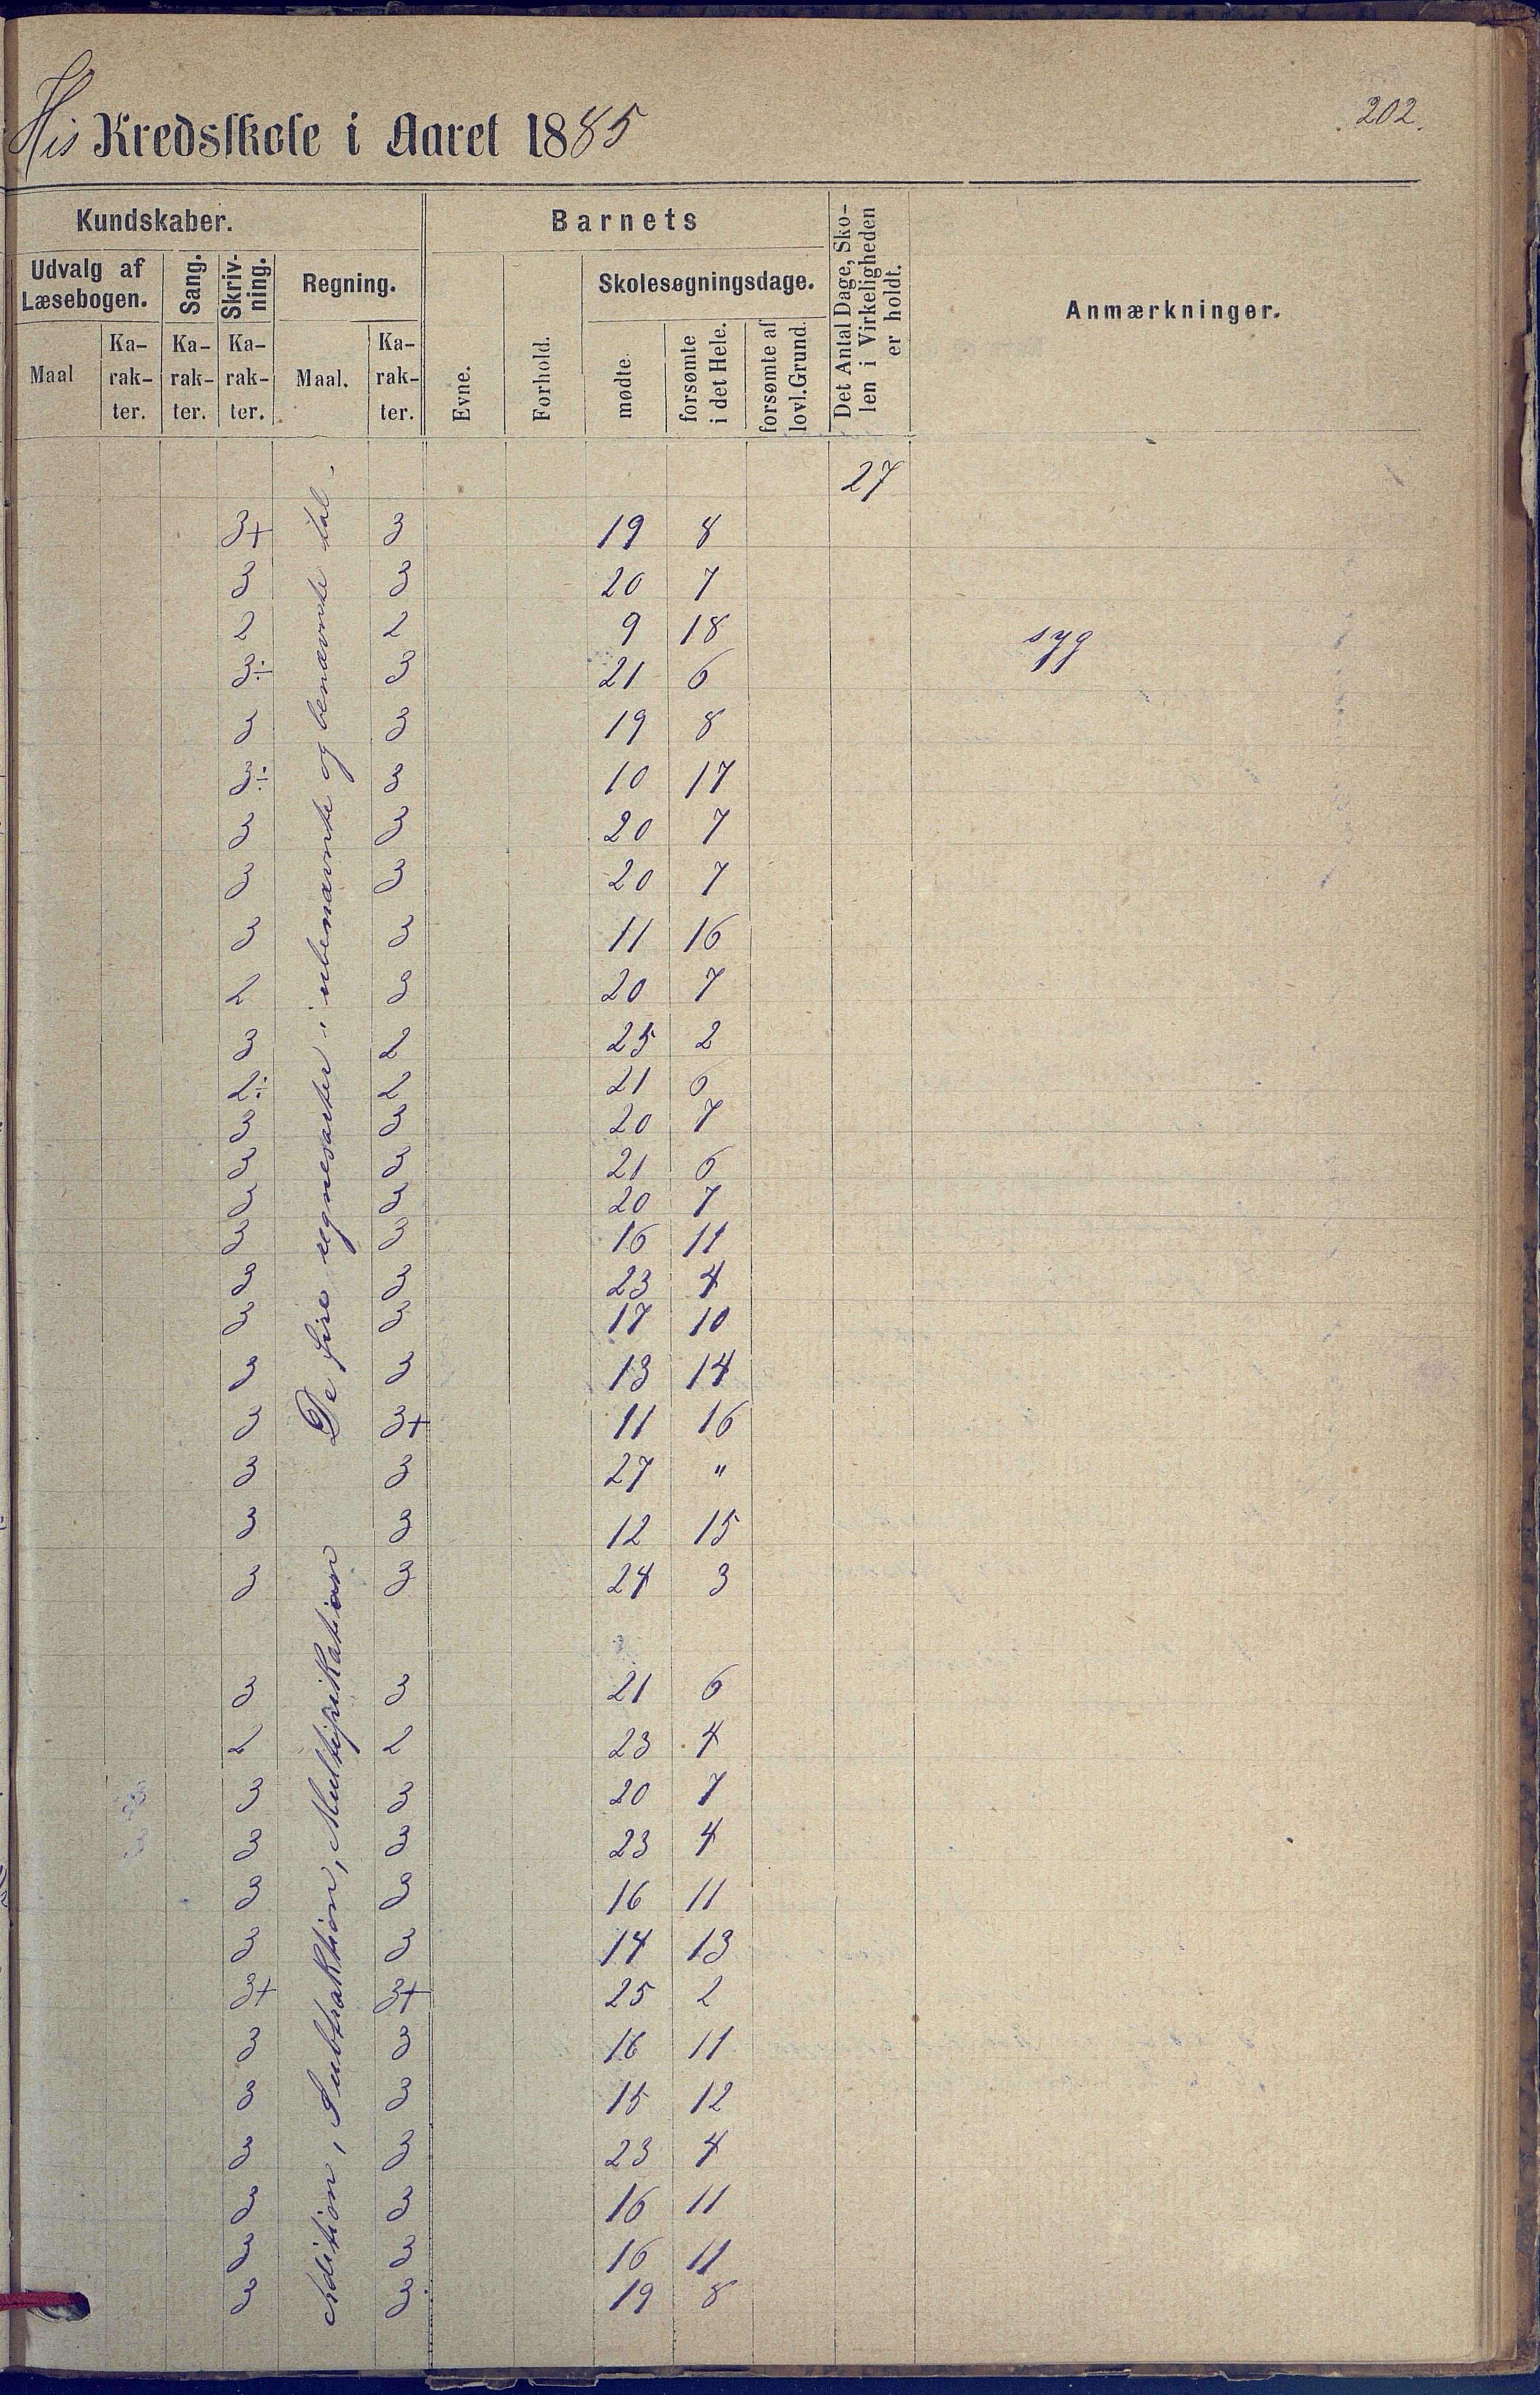 202.
His Kredsskole i Aaret 1885
Kundskaber.
Barnets
Det Antal Dage, Sko-
len i Virkeligheden
er holdt.
Anmærkninger.
Udvalg af
Læsebogen.
Sang.
Skriv-
ning.
Regning.
Evne.
Forhold.
Skolesøgningsdage.
Maal
Ka-
rak-
ter.
Ka-
rak-
ter.
Ka-
rak-
ter.
Maal.
Ka-
rak-
ter.
mødte
forsømte
i det Hele.
forsømte af
lovl. Grund.
27
De fire regnesarter i ubenævnte og benævnte tal.
3+ 3 19 8
3 3 20 7
2 2 9 18 syg
3÷ 3 21 6
3 3 19 8
3÷ 3 10 17
3 3 20 7
3 3 20 7
3 3 11 16
2 3 20 7
3 2 25 2
2÷ 2 21 6
3 3 20 7
3 3 21 6
3 3 20 7
3 3 16 11
3 3 23 4
3 3 17 10
3 3 13 14
3 3+ 11 16
3 3 27 "
3 3 12 15
3 3 24 3
Adition, Subtraktion, Multiplikation
3 3 21 6
2 2 23 4
3 3 20 7
3 3 23 4
3 3 16 11
3 3 14 13
3+ 3+ 25 2
3 3 16 11
3 3 15 12
3 3 23 4
3 3 16 11
3 3 16 11
3 3 19 8